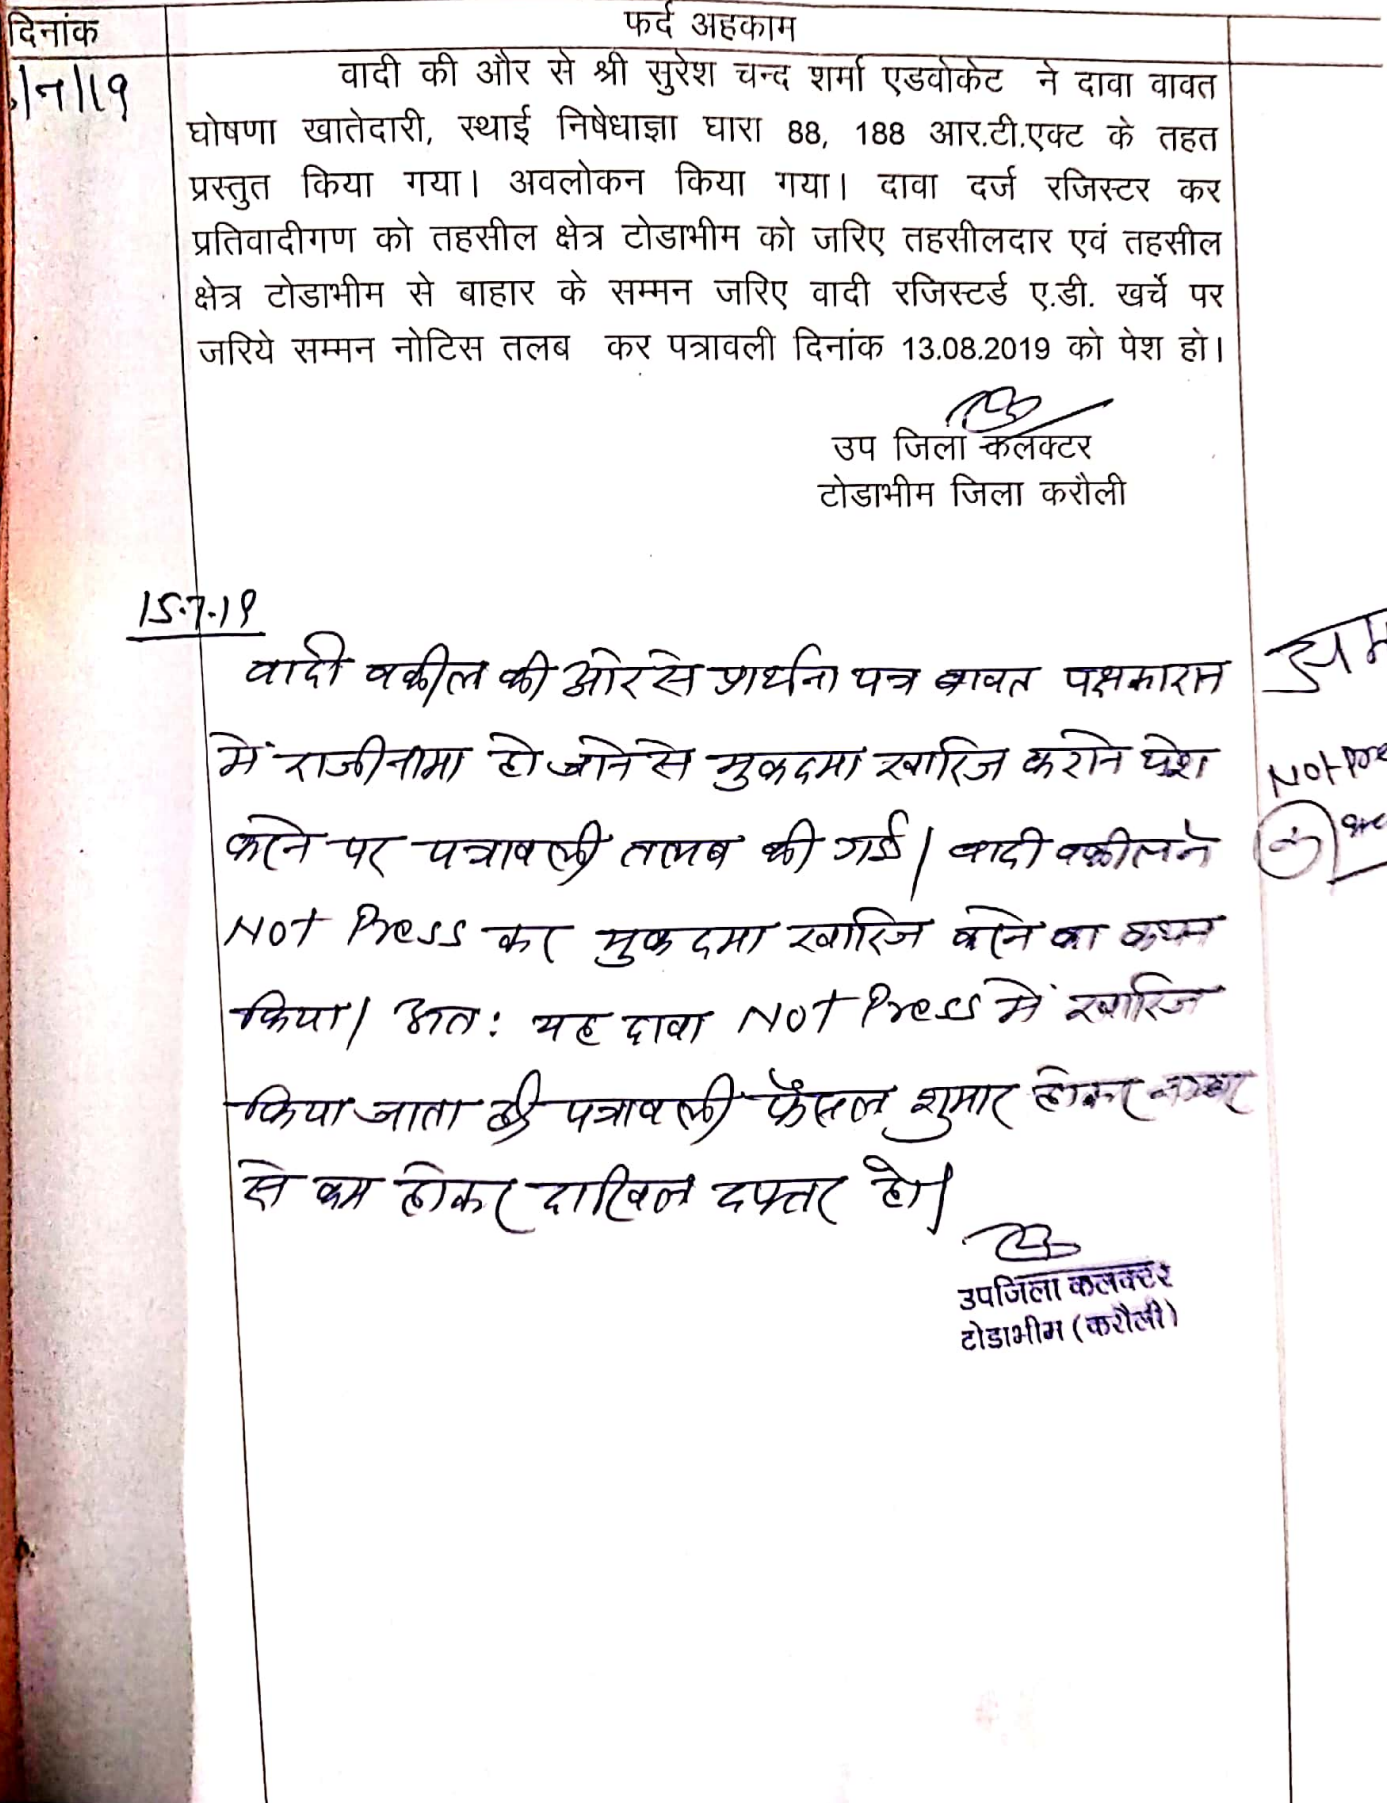 दिनांक
फर्द अहकाम
/7/19
वादी की और से श्री सुरेश चन्द शर्मा एडवोकेट ने दावा वावत
घोषणा खातेदारी, स्थाई निषेधाज्ञा घारा 88, 188 आर.टी.एक्ट के तहत
प्रस्तुत किया गया। अवलोकन किया गया। दावा दर्ज रजिस्टर कर
प्रतिवादीगण को तहसील क्षेत्र टोडाभीम को जरिए तहसीलदार एवं तहसील
क्षेत्र टोडाभीम से बाहार के सम्मन जरिए वादी रजिस्टर्ड ए.डी. खर्चे पर
जरिये सम्मन नोटिस तलब कर पत्रावली दिनांक 13.08.2019 को पेश हो।
उप जिला कलक्टर
टोडाभीम जिला करौली
15.7.19
वादी वकील की ओर से प्रार्थना पत्र बावत पक्षकारान
में राजीनामा हो जाने से मुकदमा खारिज कराने पेश
करने पर पत्रावली तलब की गई। वादी वकील ने
Not Press कर मुकदमा खारिज करने का कथन
किया। अतः यह दावा Not Press में खारिज
किया जाता है। पत्रावली फैसल शुमार होकर नम्बर
से कम होकर दाखिल दफ्तर हो।
Not
उपजिला कलक्टर
टोडाभीम (करौली)